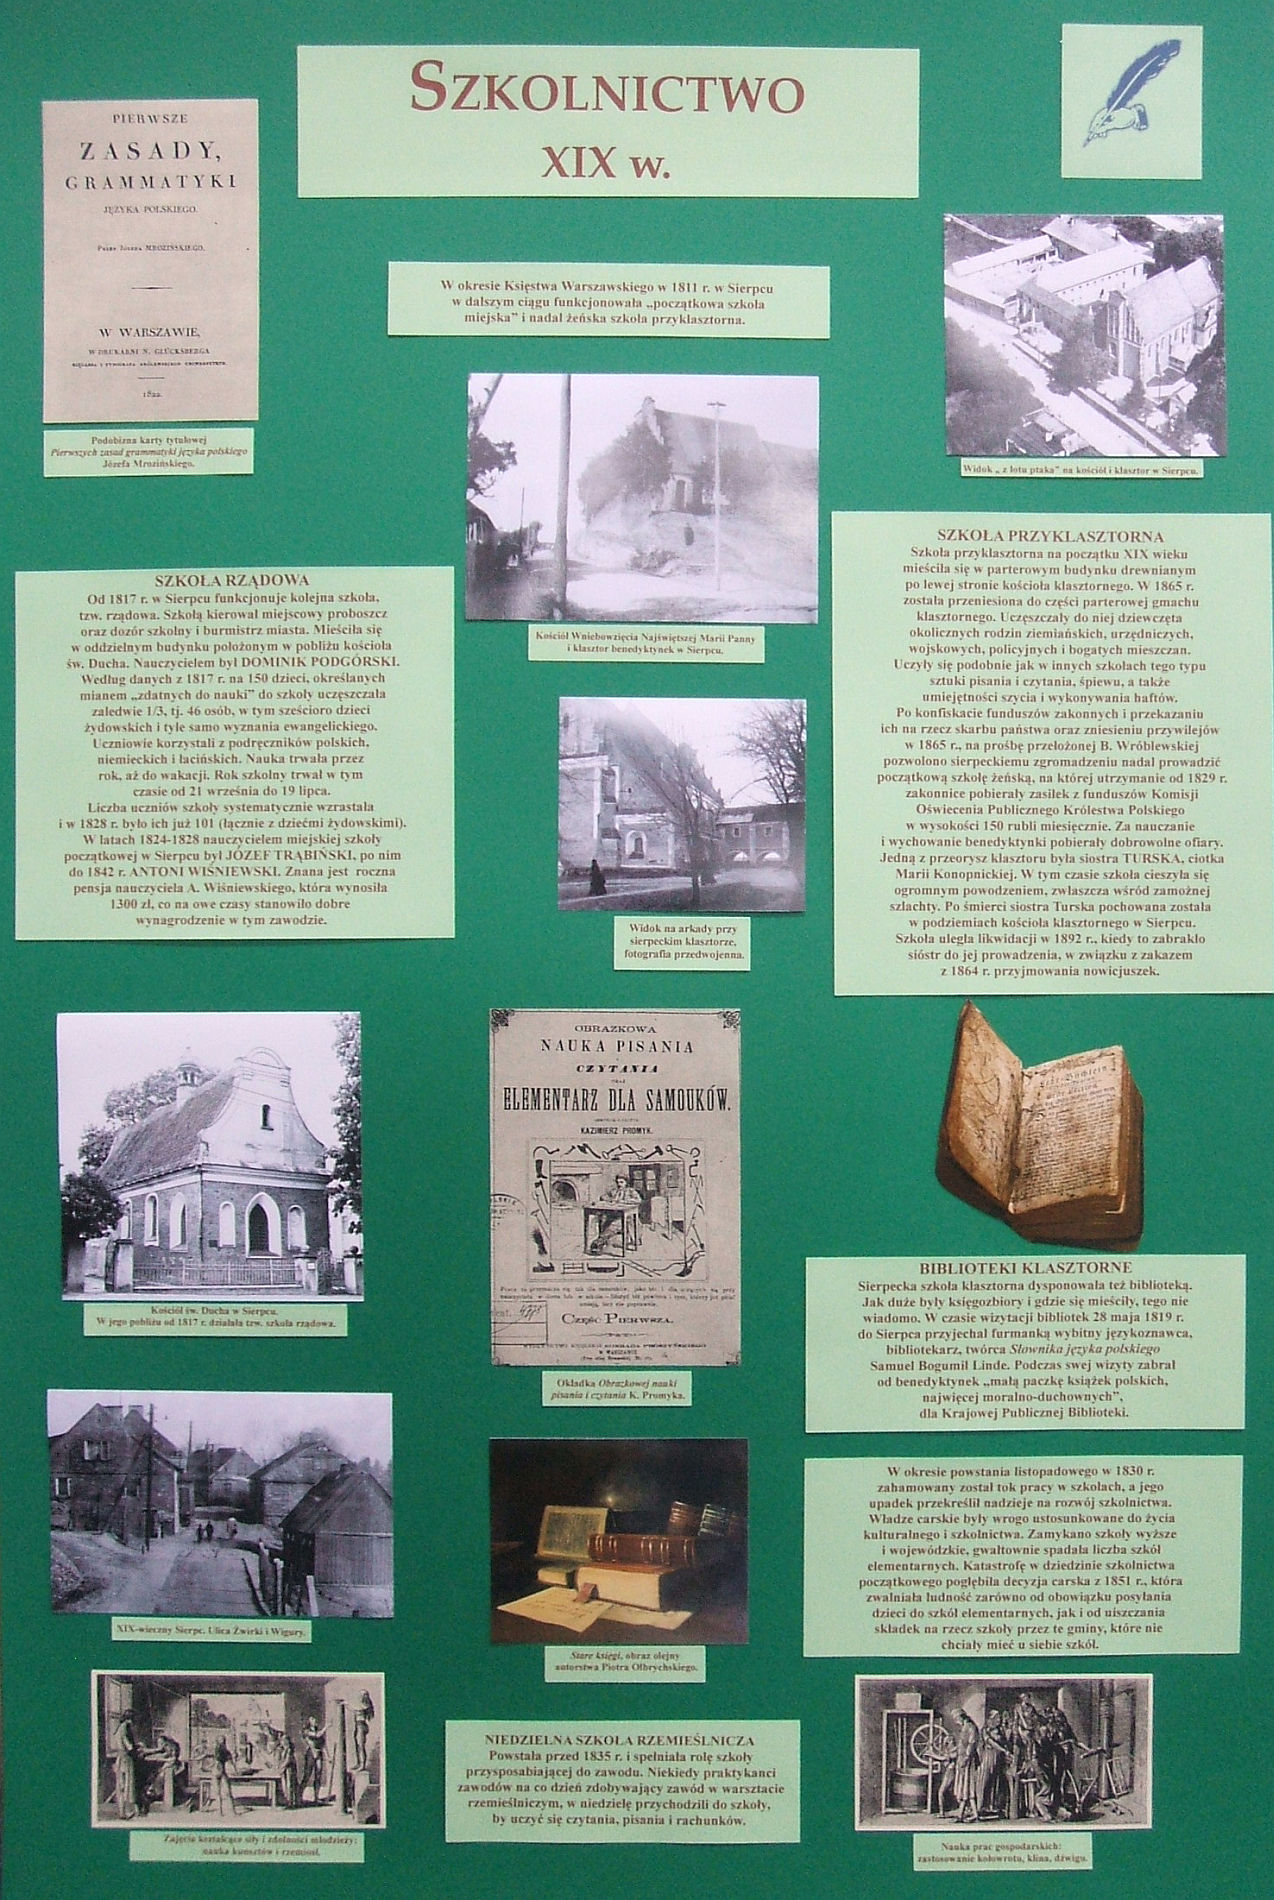 SZKOLNICTWO
XIX w.
PIERWSZE
ZASADY,
GRAMMATYKI
JĘZYKA POLSKIEGO.
PRZEZ JÓZEFA MROZIŃSKIEGO.
W WARSZAWIE,
W DRUKARNI N. GLÜCKSBERGA
1822.
Podobizna karty tytułowej
Pierwszych zasad grammatyki języka polskiego
Józefa Mrozińskiego.
W okresie Księstwa Warszawskiego w 1811 r. w Sierpcu
w dalszym ciągu funkcjonowała „początkowa szkoła
miejska” i nadal żeńska szkoła przyklasztorna.
Widok „ z lotu ptaka” na kościół i klasztor w Sierpcu.
Kościół Wniebowzięcia Najświętszej Marii Panny
i klasztor benedyktynek w Sierpcu.
SZKOŁA RZĄDOWA
Od 1817 r. w Sierpcu funkcjonuje kolejna szkoła,
tzw. rządowa. Szkołą kierował miejscowy proboszcz
oraz dozór szkolny i burmistrz miasta. Mieściła się
w oddzielnym budynku położonym w pobliżu kościoła
św. Ducha. Nauczycielem był DOMINIK PODGÓRSKI.
Według danych z 1817 r. na 150 dzieci, określanych
mianem „zdatnych do nauki” do szkoły uczęszczała
zaledwie 1/3, tj. 46 osób, w tym sześcioro dzieci
żydowskich i tyle samo wyznania ewangelickiego.
Uczniowie korzystali z podręczników polskich,
niemieckich i łacińskich. Nauka trwała przez
rok, aż do wakacji. Rok szkolny trwał w tym
czasie od 21 września do 19 lipca.
Liczba uczniów szkoły systematycznie wzrastała
i w 1828 r. było ich już 101 (łącznie z dziećmi żydowskimi).
W latach 1824-1828 nauczycielem miejskiej szkoły
początkowej w Sierpcu był JÓZEF TRĄBIŃSKI, po nim
do 1842 r. ANTONI WIŚNIEWSKI. Znana jest roczna
pensja nauczyciela A. Wiśniewskiego, która wynosiła
1300 zł, co na owe czasy stanowiło dobre
wynagrodzenie w tym zawodzie.
SZKOŁA PRZYKLASZTORNA
Szkoła przyklasztorna na początku XIX wieku
mieściła się w parterowym budynku drewnianym
po lewej stronie kościoła klasztornego. W 1865 r.
została przeniesiona do części parterowej gmachu
klasztornego. Uczęszczały do niej dziewczęta
okolicznych rodzin ziemiańskich, urzędniczych,
wojskowych, policyjnych i bogatych mieszczan.
Uczyły się podobnie jak w innych szkołach tego typu
sztuki pisania i czytania, śpiewu, a także
umiejętności szycia i wykonywania haftów.
Po konfiskacie funduszów zakonnych i przekazaniu
ich na rzecz skarbu państwa oraz zniesieniu przywilejów
w 1865 r., na prośbę przełożonej B. Wróblewskiej
pozwolono sierpeckiemu zgromadzeniu nadal prowadzić
początkową szkołę żeńską, na której utrzymanie od 1829 r.
zakonnice pobierały zasiłek z funduszów Komisji
Oświecenia Publicznego Królestwa Polskiego
w wysokości 150 rubli miesięcznie. Za nauczanie
i wychowanie benedyktynki pobierały dobrowolne ofiary.
Jedną z przeorysz klasztoru była siostra TURSKA, ciotka
Marii Konopnickiej. W tym czasie szkoła cieszyła się
ogromnym powodzeniem, zwłaszcza wśród zamożnej
szlachty. Po śmierci siostra Turska pochowana została
w podziemiach kościoła klasztornego w Sierpcu.
Szkoła uległa likwidacji w 1892 r., kiedy to zabrakło
sióstr do jej prowadzenia, w związku z zakazem
z 1864 r. przyjmowania nowicjuszek.
Widok na arkady przy
sierpeckim klasztorze,
fotografia przedwojenna.
Kościół św. Ducha w Sierpcu.
W jego pobliżu od 1817 r. działała tzw. szkoła rządowa.
OBRAZKOWA
NAUKA PISANIA
I
CZYTANIA
ORAZ
ELEMENTARZ DLA SAMOUKÓW.
KAZIMIERZ PROMYK.
CZĘŚĆ PIERWSZA.
W WARSZAWIE
Okładka Obrazkowej nauki
pisania i czytania K. Promyka.
BIBLIOTEKI KLASZTORNE
Sierpecka szkoła klasztorna dysponowała też biblioteką.
Jak duże były księgozbiory i gdzie się mieściły, tego nie
wiadomo. W czasie wizytacji bibliotek 28 maja 1819 r.
do Sierpca przyjechał furmanką wybitny językoznawca,
bibliotekarz, twórca Słownika języka polskiego
Samuel Bogumił Linde. Podczas swej wizyty zabrał
od benedyktynek „małą paczkę książek polskich,
najwięcej moralno-duchownych”,
dla Krajowej Publicznej Biblioteki.
W okresie powstania listopadowego w 1830 r.
zahamowany został tok pracy w szkołach, a jego
upadek przekreślił nadzieje na rozwój szkolnictwa.
Władze carskie były wrogo ustosunkowane do życia
kulturalnego i szkolnictwa. Zamykano szkoły wyższe
i wojewódzkie, gwałtownie spadała liczba szkół
elementarnych. Katastrofę w dziedzinie szkolnictwa
początkowego pogłębiła decyzja carska z 1851 r., która
zwalniała ludność zarówno od obowiązku posyłania
dzieci do szkół elementarnych, jak i od uiszczania
składek na rzecz szkoły przez te gminy, które nie
chciały mieć u siebie szkół.
XIX-wieczny Sierpc. Ulica Żwirki i Wigury.
Stare księgi, obraz olejny
autorstwa Piotra Olbrychskiego.
NIEDZIELNA SZKOŁA RZEMIEŚLNICZA
Powstała przed 1835 r. i spełniała rolę szkoły
przysposabiającej do zawodu. Niekiedy praktykanci
zawodów na co dzień zdobywający zawód w warsztacie
rzemieślniczym, w niedzielę przychodzili do szkoły,
by uczyć się czytania, pisania i rachunków.
Zajęcia kształcące siły i zdolności młodzieży:
nauka kunsztów i rzemiosł.
Nauka prac gospodarskich:
zastosowanie kołowrotu, klina, dźwigu.